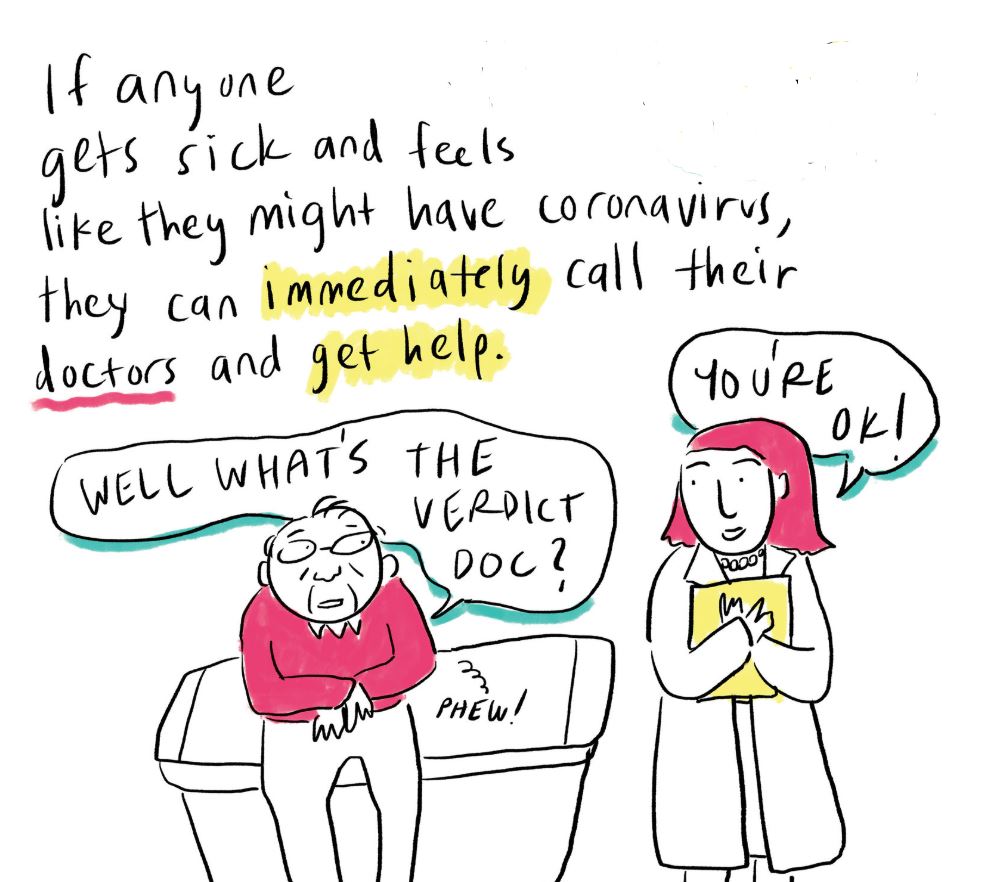 If anyone
gets sick and feels
like they might have coronavirus,
they can immediately call their
doctors and get help.
YOU'RE
OK!
WELL WHAT'S THE
VERDICT
DOC?
PHEW!